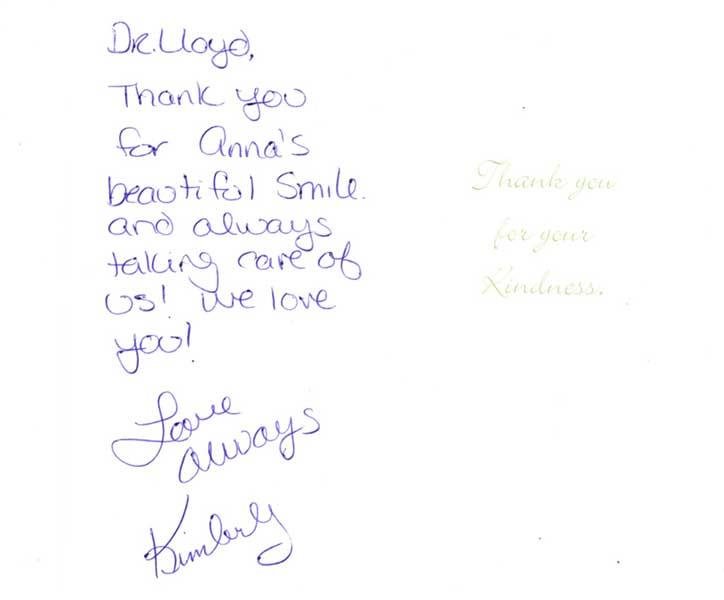 Dr. Lloyd,
Thank you
for Anna's
beautiful Smile.
and always
taking care of
us! We love
you!
Love
always
Kimberly
Thank you
for your
Kindness.